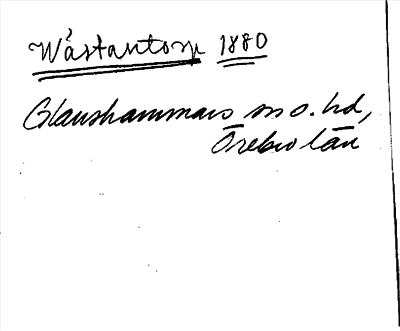 Wåstantorp 1880
Glanshammars sn o. hd,
Örebro län